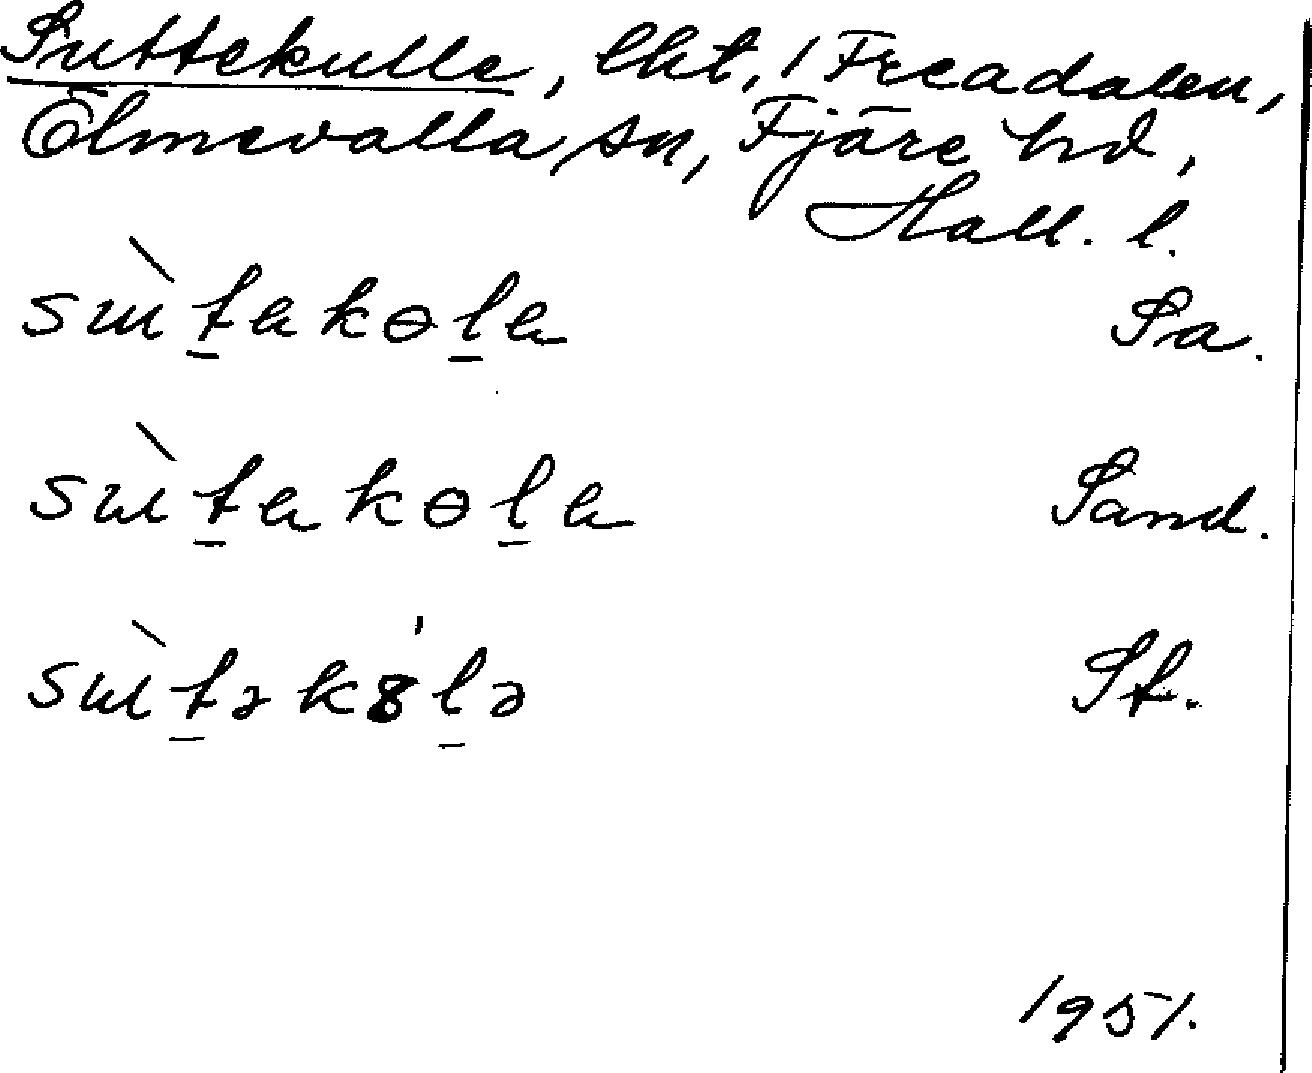 Suttekulle, lht, i Freadalen,
Ölmevalla sn, Fjäre hd,
Hall. l.
sɯ̀t̲ak​ɵl̲a Sa.
sɯ̀t̲akɵl̲a Sand.
sɯ̀t̲ək8̍l̲ə St.
1951.